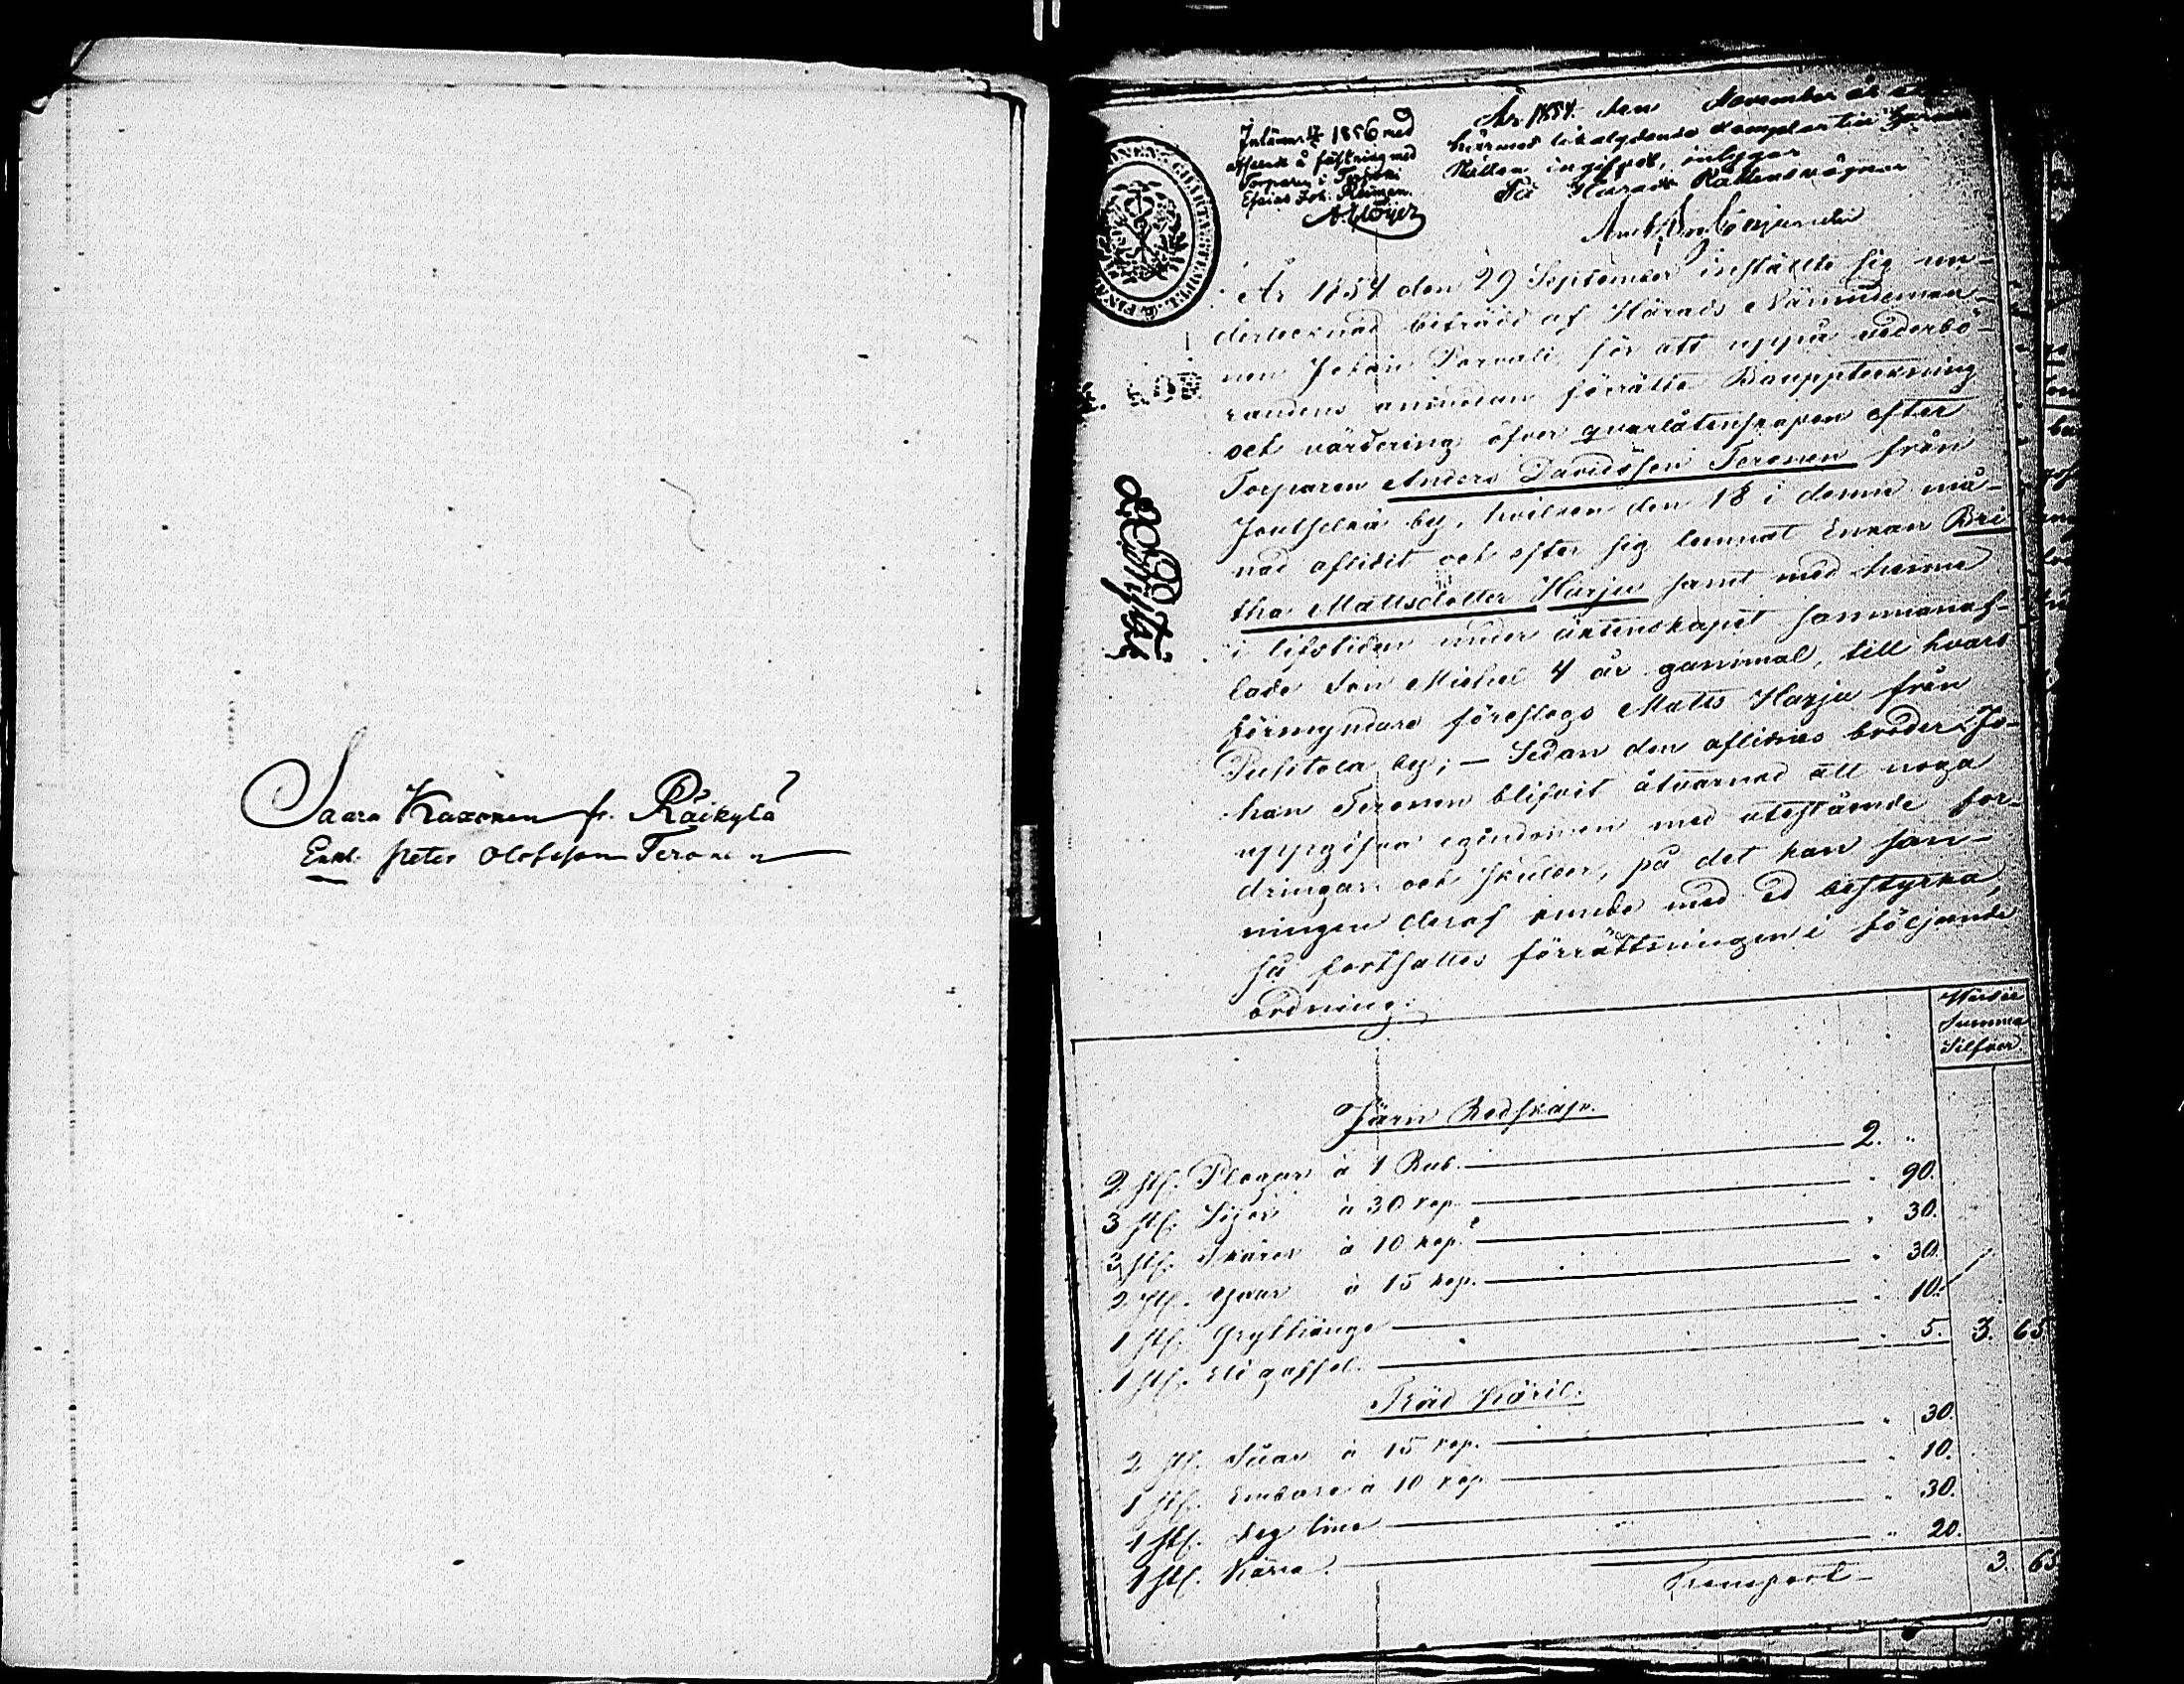 Saara Kaxonen fr. Räikylä
Enkl. Peter Olofsson Teronen
Inlämn: 1856 med
afseende å fästning med
Torparen i
Esaias Joh.
År 1854 den November är ett
härmed likalydande exemplar till Härads
Rätten ingifvet, intygar
På Härads Rättens vägnar
År 1854 den 29 September inställte sig un-
dertecknad biträdd af Härads Nämndeman-
nen Johan Porvali, för att uppå vederbö-
randens anmodan förrätta Bouppteckning
och värdering öfver qvarlåtenskapen efter
Torparen Anders Davidsson Teronen från
Joutselkä by, hvilken den 18 i denne må-
nad aflidit och efter sig lemnat Enkan Bri
tha Mattsdotter Harju samt med henne
i lifstiden under äktenskapet sammanaf-
lade Son Michel 4 år gammal, till hvars
förmyndare föreslogs Matts Harju från
by; – Sedan den aflidnes broder Jo-
han Teronen blifvit åtvarnad att noga
uppgifva egendomen med utestående for-
dringar och skulder, på det han san-
ningen deraf kunde med ed bestyrka,
så fortsattes förrättningen i följande
ordning:
Värde
Summa
Silfver.
Järn Redskap.
2 st. Plogar à 1 Rub. 2. "
3 st. Liger à 30 kop. " 90.
3 st. Skäror à 10 kop. " 30.
2 st. Yxar à 15 kop. " 30.
1 st. Grythänge " 10.
1 st. Eld gaffel. " 5. 3. 65.
Träd Käril.
2 st. Såar à 15 kop. " 30.
1 st. Embare à 10 kop. " 10.
1 st. Deg tina " 30.
1 st. Kärna. " 20.
Transport 3. 65